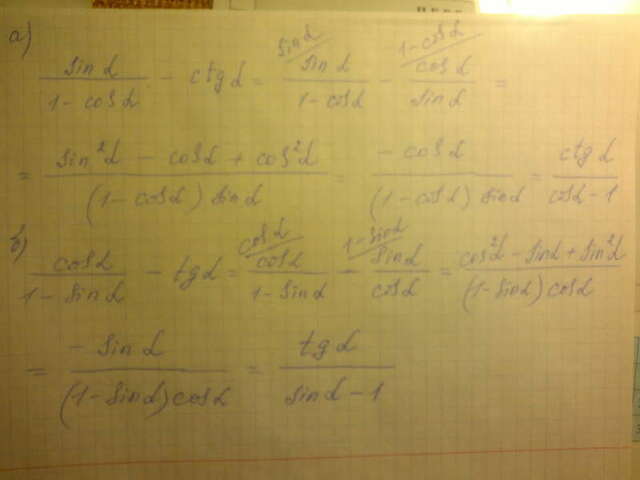 а)
sin α / 1 - cos α - ctg α = sin α / sin α / 1 - cos α - 1 - cos α / cos α / sin α =
= sin²α - cos α + cos²α / (1 - cos α) sin α = - cos α / (1 - cos α) sin α = ctg α / cos α - 1
б)
cos α / 1 - sin α - tg α = cos α / cos α / 1 - sin α - 1 - sin α / sin α / cos α = cos²α - sin α + sin²α / (1 - sin α) cos α
= - sin α / (1 - sin α) cos α = tg α / sin α - 1